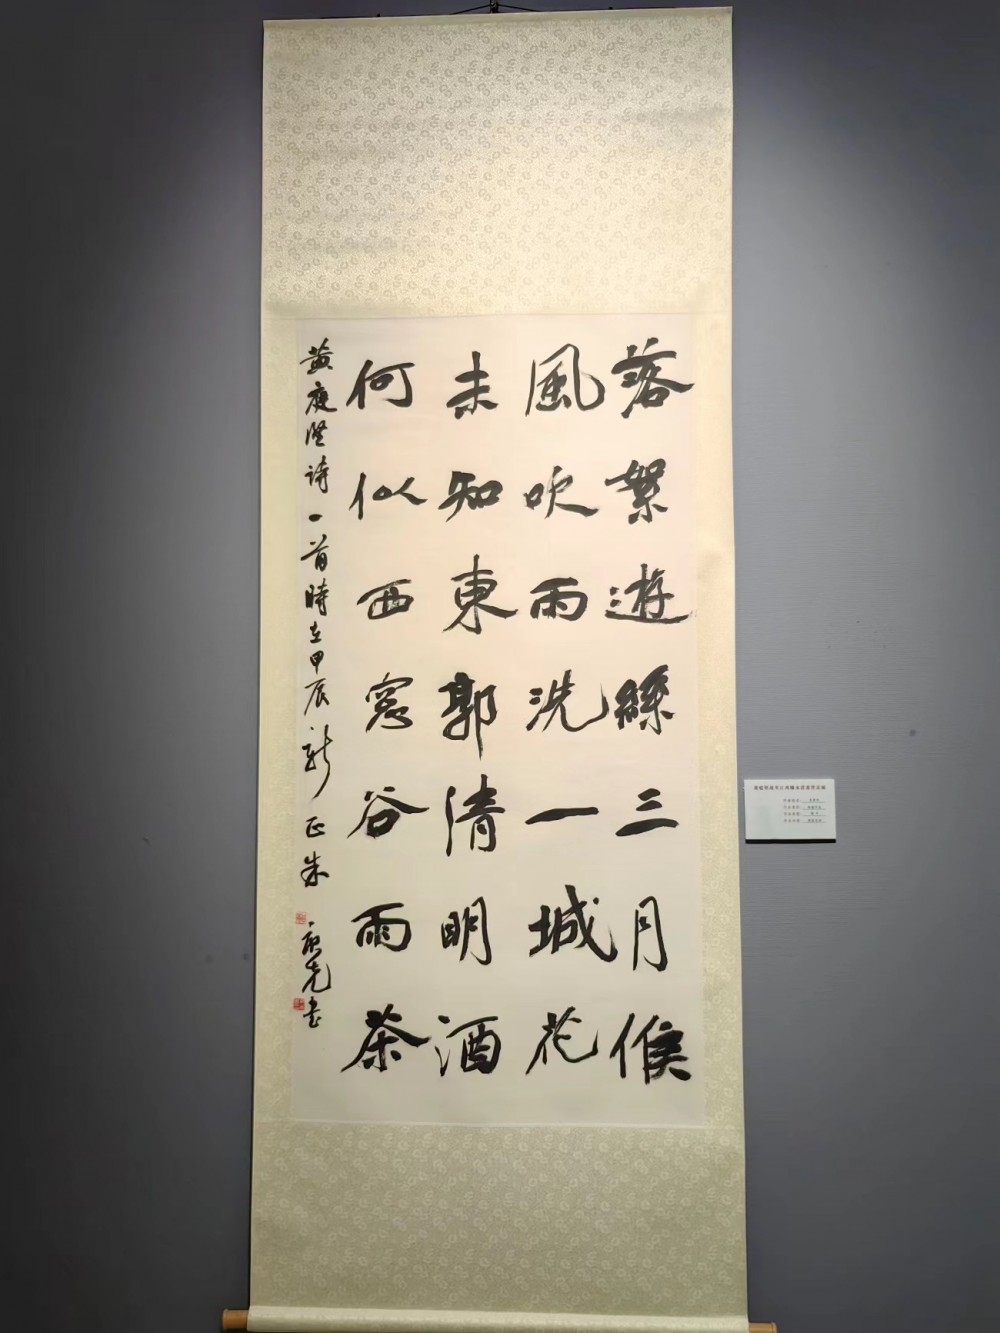 落絮遊絲三月候
風吹雨洗一城花
未知東郭清明酒
何似西窓谷雨茶
黄庭堅詩一首時在甲辰新正朱